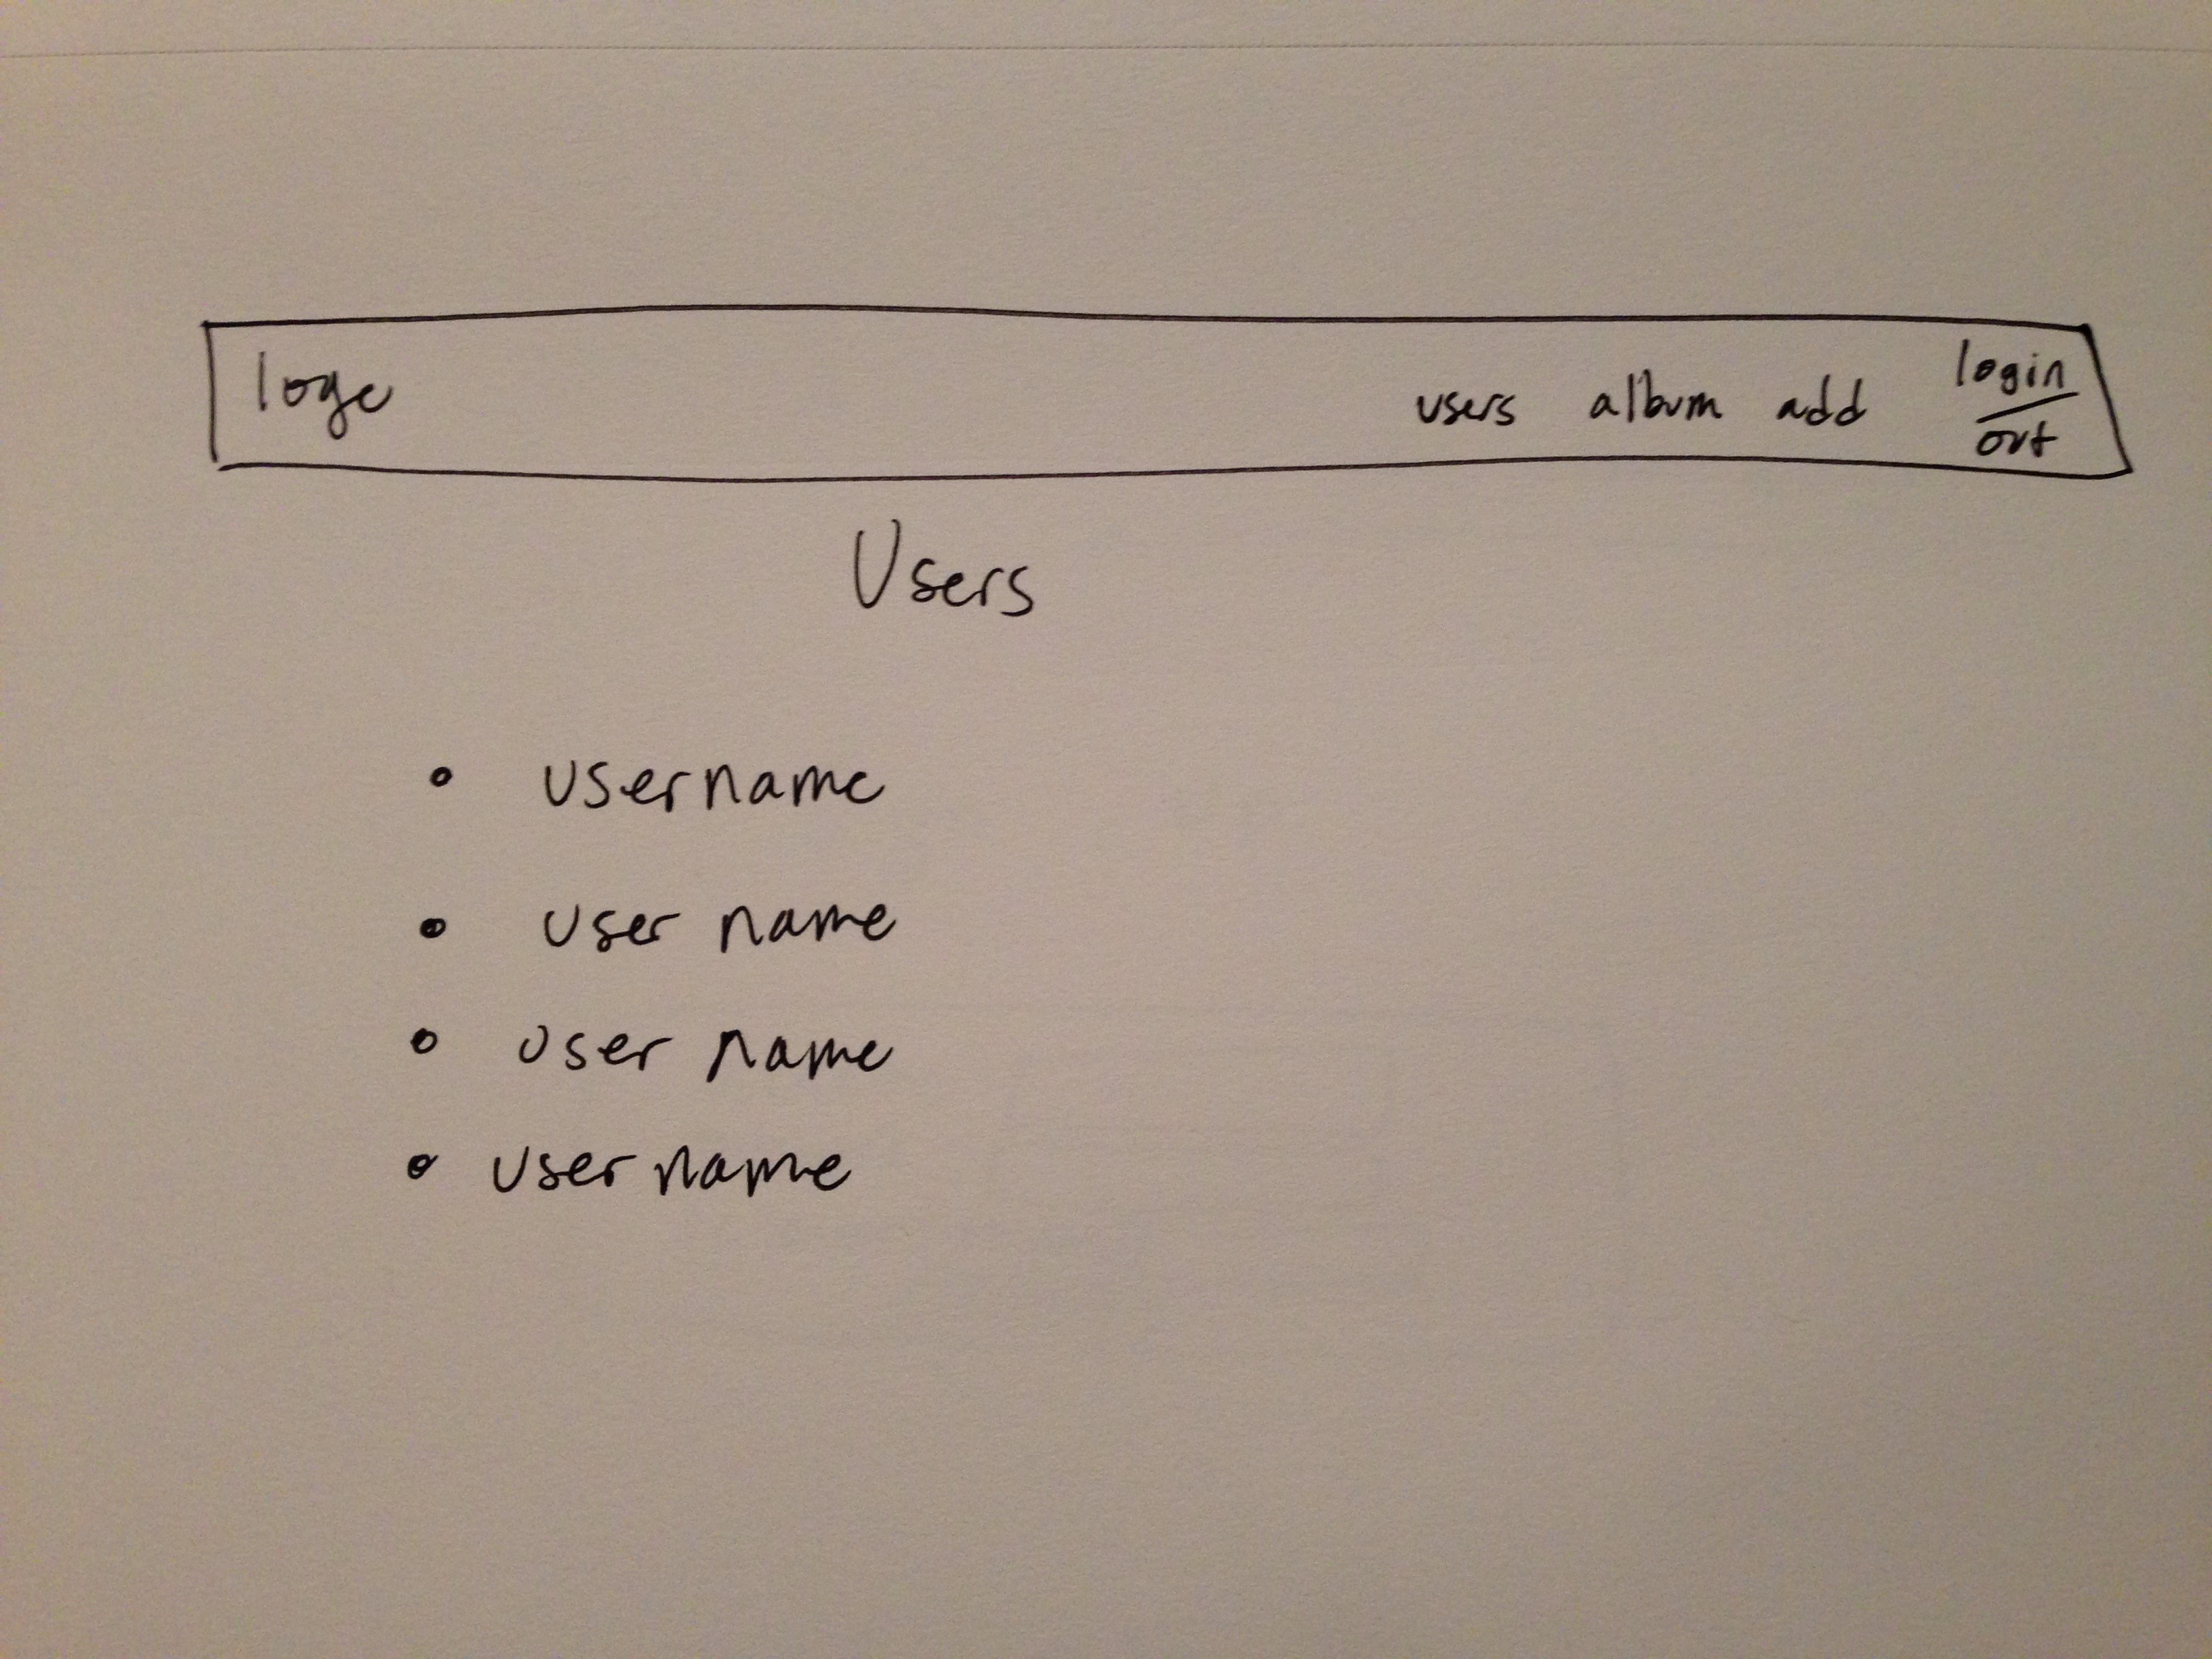 logo users album add login/out
Users
• username
• user name
• user name
• user name